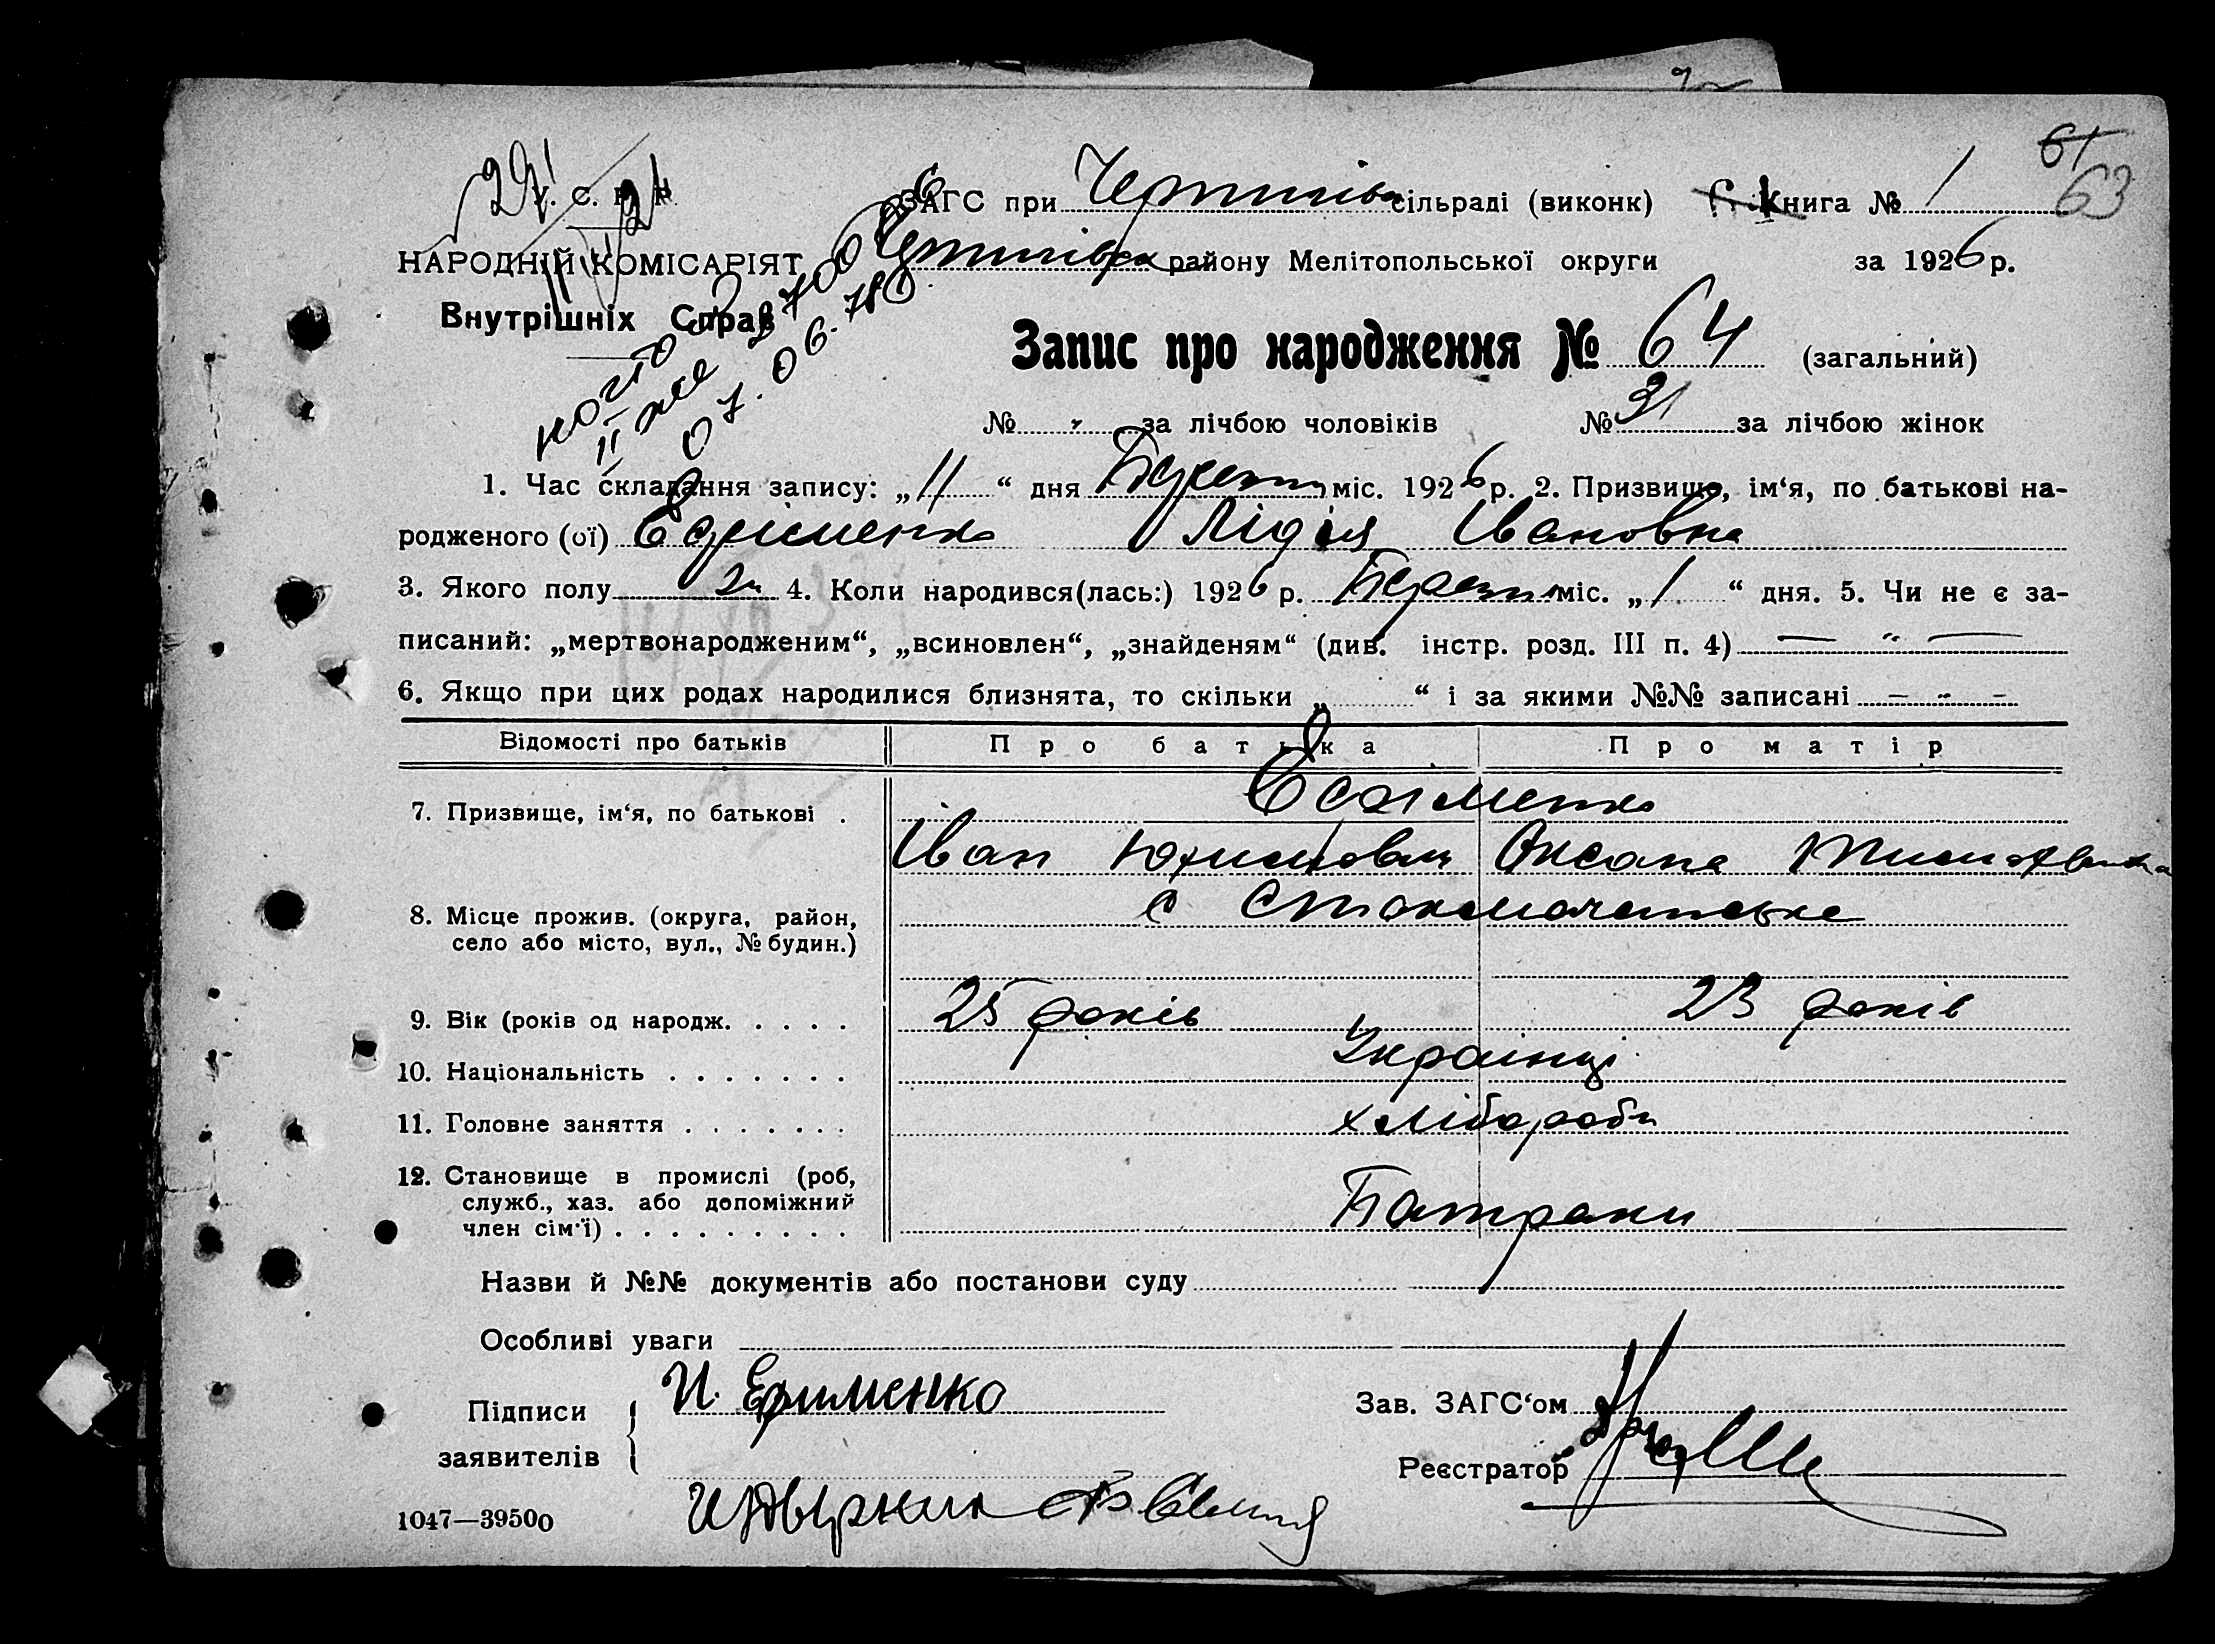 61
63
У. С. Р. Р.
ЗАГС при сільраді (виконк) Книга № 1
НАРОДНІЙ КОМІСАРІЯТ
району Мелітопольської округи за 1926 р.
Внутрішніх Справ
07.06.78
Запис про народження № 64 (загальний)
№ " за лічбою чоловіків № 31 за лічбою жінок
1. Час складання запису: „11“ дня міс. 1926 р. 2. Призвище, ім‘я, по батькові на-
родженого (ої) Єфіменко Лідія Івановна
3. Якого полу 4. Коли народився(лась:) 1926 р. міс. „1“ дня. 5. Чи не є за-
писаний: „мертвонародженим“, „всиновлен“, „знайденям“ (див. інстр. розд. III п. 4) — " —
6. Якщо при цих родах народилися близнята, то скільки „ “ і за якими №№ записані – " –
Відомості про батьків Про батька Про матір
7. Призвище, ім‘я, по батькові . Єфименко
Іван Оксана
8. Місце прожив. (округа, район, с
село або місто, вул., № будин.)
9. Вік (років од народж. . . . . 25 років 23 років
10. Національність . . . . . . . Українці
11. Головне заняття . . . . . . . хлібороби
12. Становище в промислі (роб,
служб., хаз. або допоміжний
член сім‘ї) . . . . . . . . . Батраки
Назви й №№ документів або постанови суду
Особливі уваги
Підписи И. Ефименко Зав. ЗАГС‘ом
заявителів Реєстратор
1047—39500